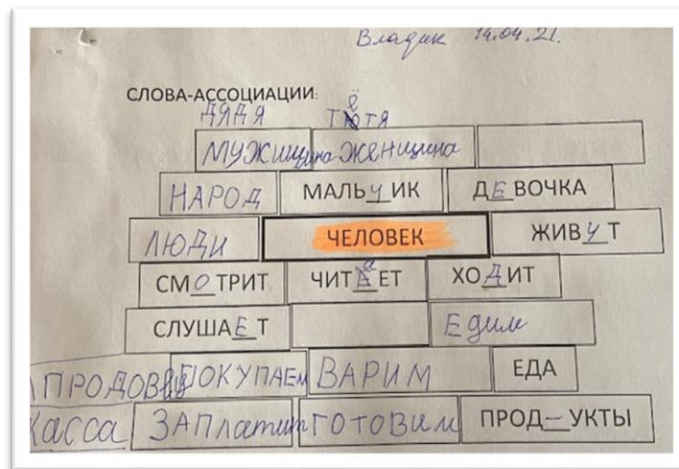 Владик 14.04.21.
СЛОВА-АССОЦИАЦИИ:
ДЯДЯ ТЁТЯ
МУЖИщина женщина
НАРОД МАЛЬЧИК ДЕВОЧКА
ЛЮДИ ЧЕЛОВЕК ЖИВУТ
СМОТРИТ ЧИТаЕТ ХОДИТ
СЛУШАЕТ Едим
ПРОДОВЕЦ ПОКУПАЕМ ВАРИМ ЕДА
Касса ЗАПлатит ГОТОВИМ ПРОД–УКТЫ